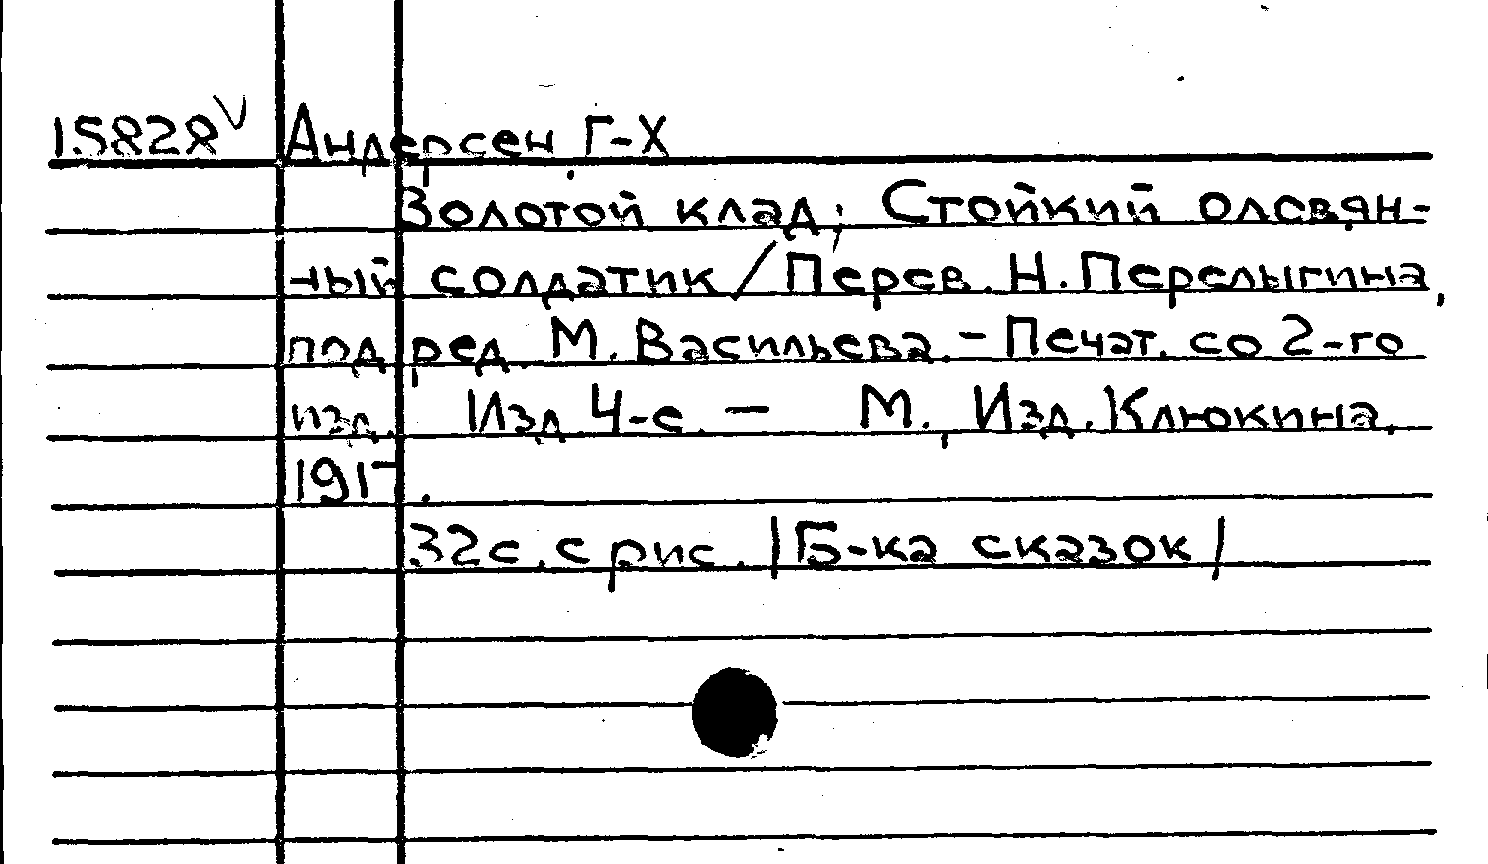 15828 V Андерсен, Г-Х
Золотой клад; Стойкий оловян-
ный солдатик / Перев. Н. Перелыгина,
под ред. М. Васильева. - Печат. со 2-го
изд. Изд 4-е. — М., Изд. Клюкина,
32с. с рис. /Б-ка сказок/